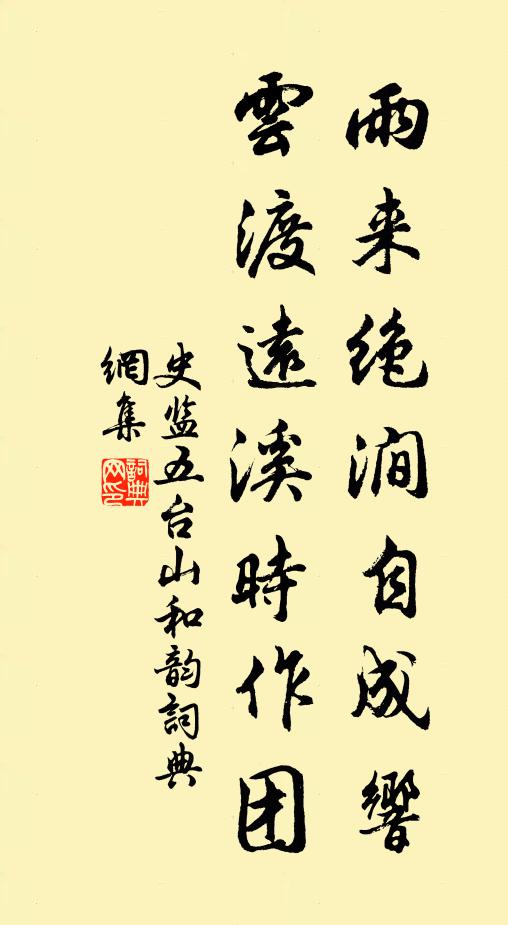 雨来绝涧自成響
雲渡遠溪時作团
史监五台山和韵詞典
網集
詞典網印